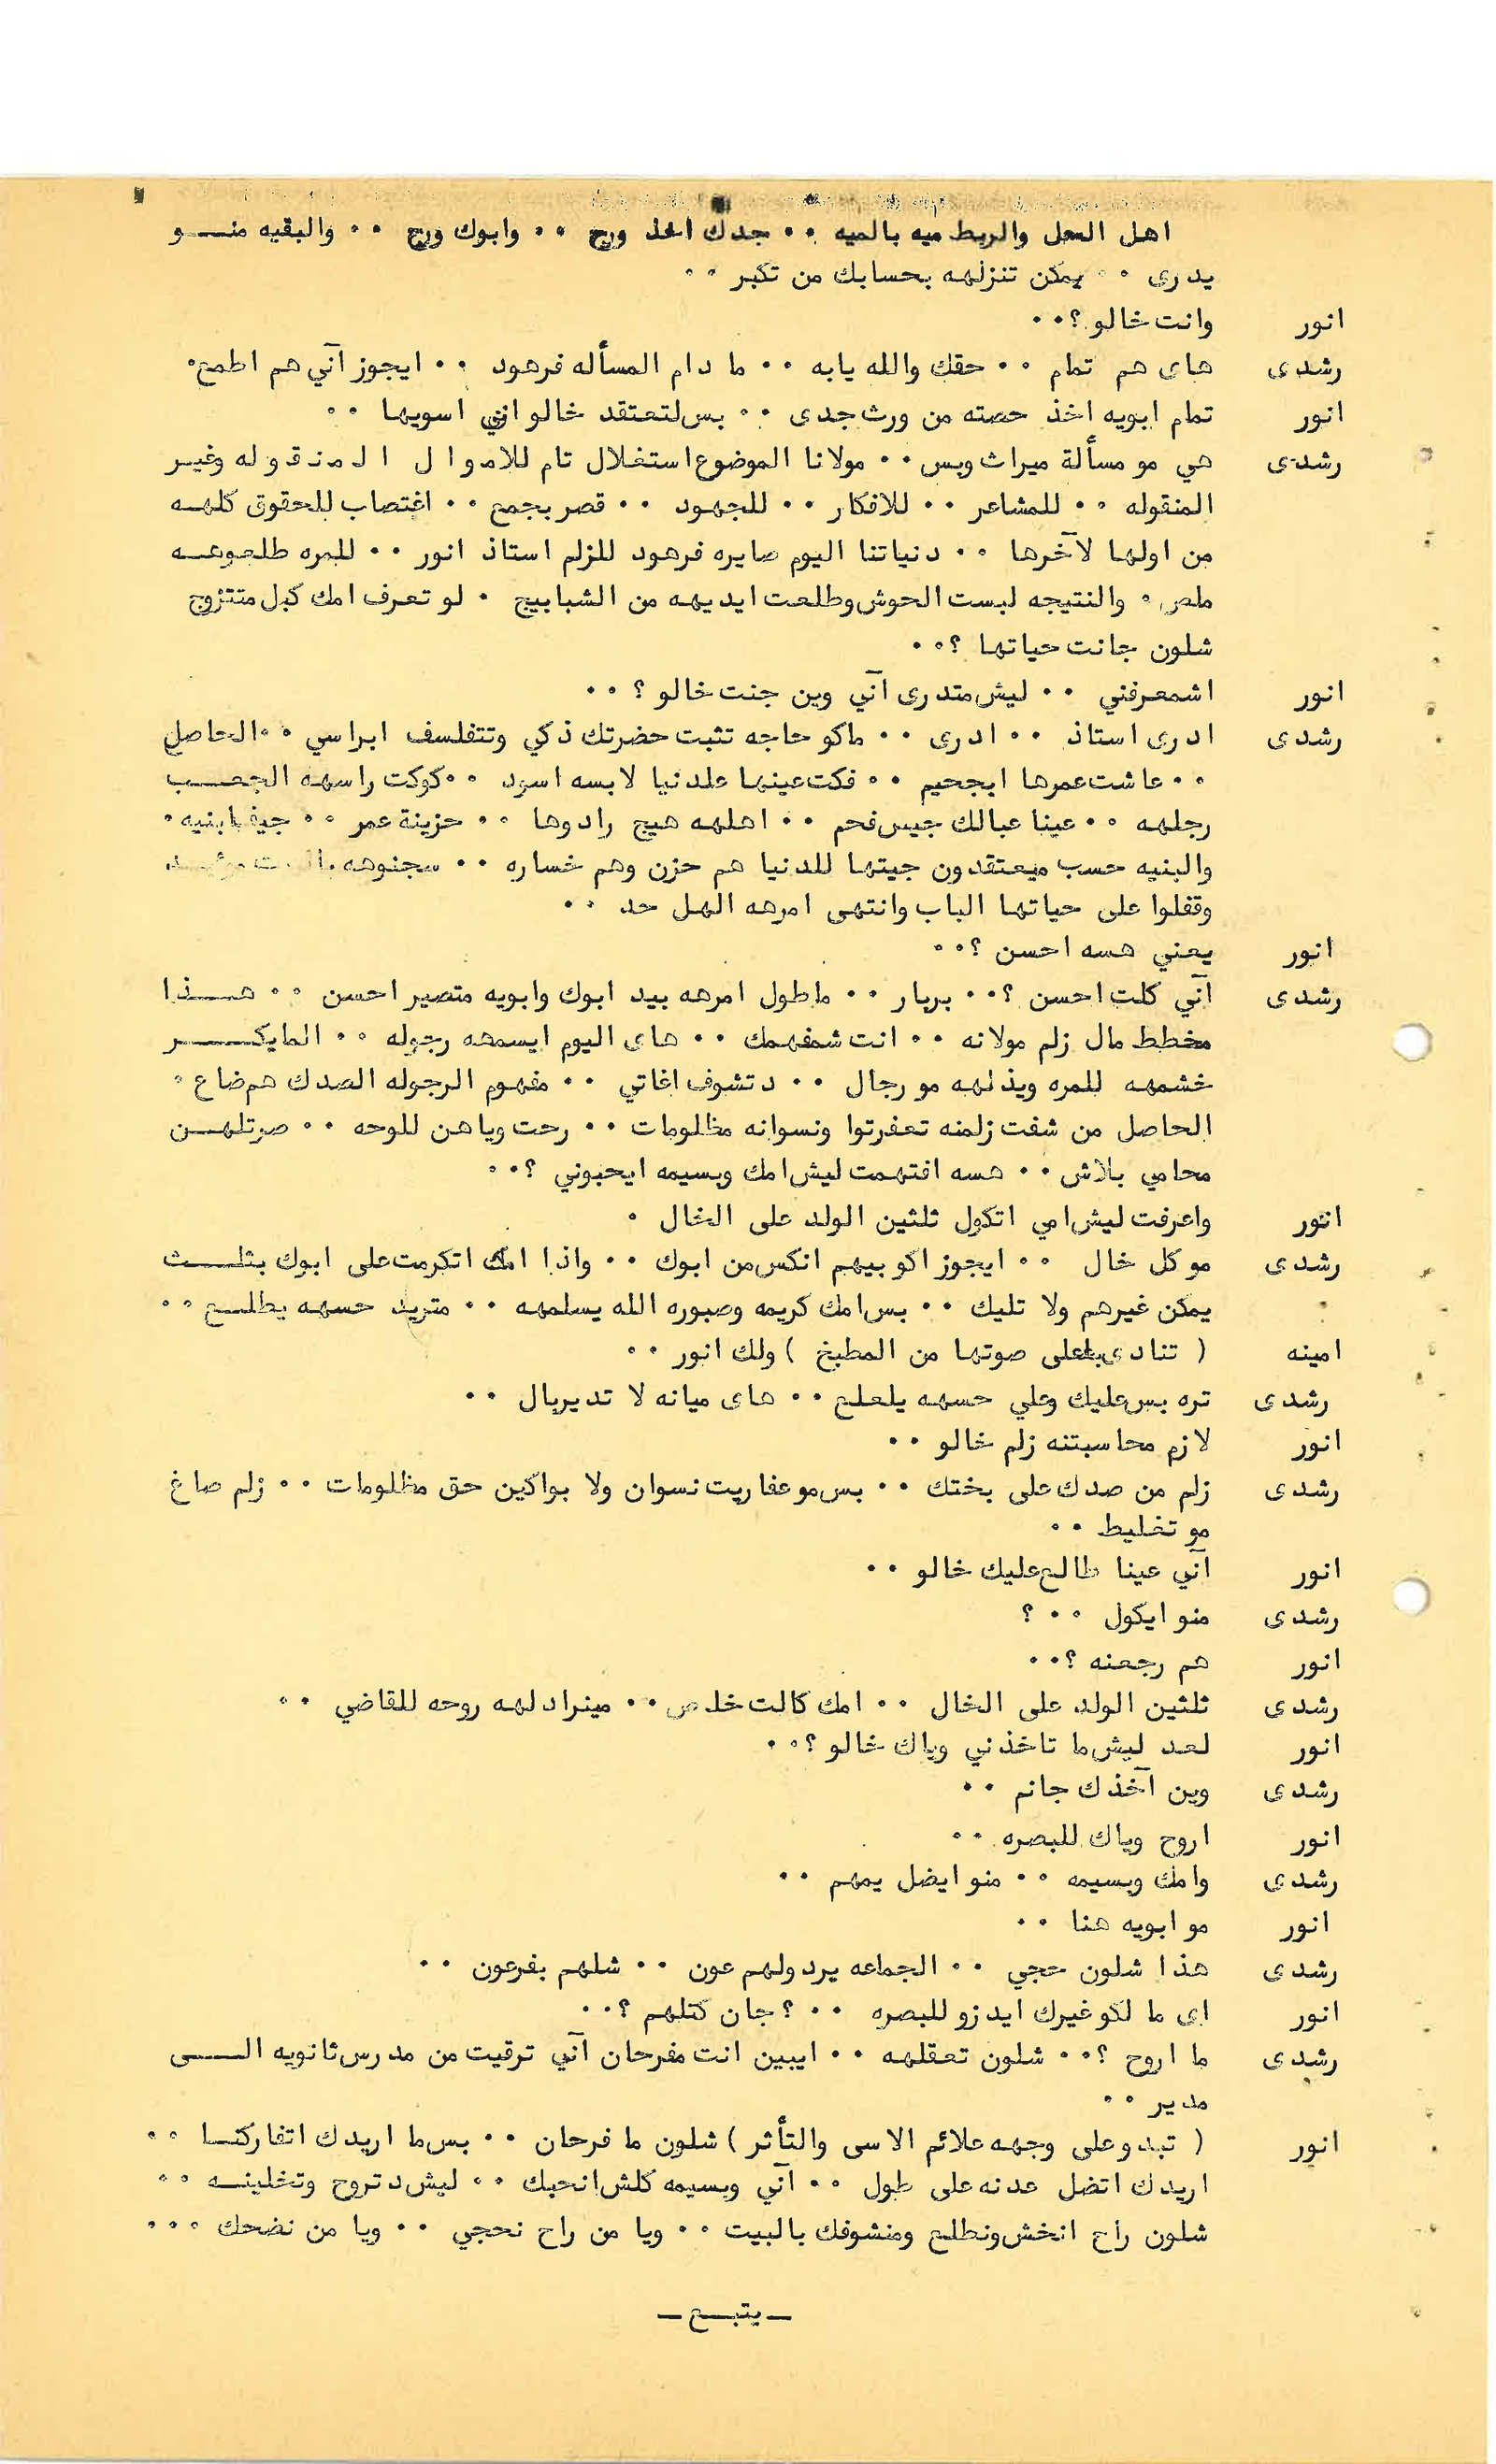 اهل الحل والربط ميه بالميه ٠٠ جدك اخذ ورج ٠٠ وابوك ورج ٠٠ والبقيه منـــو
يدرى ٠٠ يمكن تنزلهه بحسابك من تكبر ٠٠
انور وانت خالو ؟٠٠
رشدى هاى هم تمام ٠٠ حقك والله يابه ٠٠ ما دام المسأله فرهود ٠٠ ايجوز آني هم اطمع٠
انور تمام ابويه اخذ حصته من ورث جدى ٠٠ بس لتعتقد خالو انني اسويها ٠٠
رشدى هي مو مسألة ميراث وبس ٠٠ مولانا الموضوع استغلال تام للاموال المنقوله وغيـر
المنقوله ٠٠ للمشاعر ٠٠ للافكار ٠٠ للجهود ٠٠ قصر بجمع ٠٠ اغتصاب للحقوق كلهـه
من اولها لآخرها ٠٠ دنياتنا اليوم صايره فرهود للزلم استاذ انور ٠٠ للمره طلعوهـه
ملص ٠ والنتيجه لبست الحوش وطلعت ايديهه من الشبابيج ٠ لو تعرف امك كبل متتزوج
شلون جانت حياتها ؟٠٠
انور اشمعرفني ٠٠ ليش متدرى آني وين جنت خالو ؟ ٠٠
رشدى ادرى استاذ ٠٠ ادرى ٠٠ ماكو حاجه تثبت حضرتك ذكي وتتفلسف ابراسي ٠٠ الحاصل
٠٠ عاشت عمرها ابجحيم ٠٠ فكت عينها علدنيا لابسه اسود ٠٠ كوكت راسهه الجعــب
رجلهه ٠٠ عينا عبالك جيس فحم ٠٠ اهلهه هيج رادوها ٠٠ حزينة عمر ٠٠ جيفا بنيه ٠
والبنيه حسب ميعتقدون جيتها للدنيا هم حزن وهم خساره ٠٠ سجنوهه
وقفلوا على حياتها الباب وانتهى امرهه الهل حد ٠٠
انور يعني هسه احسن ؟٠٠
رشدى آني كلت احسن ؟٠٠ بربار ٠٠ ماطول امرهه بيد ابوك وابويه متصير احسن ٠٠ هـــذا
مخطط مال زلم مولانه ٠٠ انت شمفهمك ٠٠ هاى اليوم ايسمهه رجوله ٠٠ المايكـــــر
خشمهه للمره ويذلهه مو رجال ٠٠ دتشوف اغاتي ٠٠ مفهوم الرجوله الصدك هم ضاع ٠
الحاصل من شفت زلمنه تعفرتوا ونسوانه مظلومات ٠٠ رحت وياهن للوحه ٠٠ صرتلهــن
محامي بلاش ٠٠ هسه افتهمت ليش امك وبسيمه ايحبوني ؟٠٠
انور واعرفت ليش امي اتكول ثلثين الولد على الخال ٠
رشدى مو كل خال ٠٠ ايجوز اكو بيهم انكس من ابوك ٠٠ واذا امك اتكرمت على ابوك بثلـــث
يمكن غيرهم ولا تليك ٠٠ بس امك كريمه وصبوره الله يسلمهه ٠٠ متريد حسهه يطلــع ٠٠
امينه ( تنادى باعلى صوتها من المطبخ ) ولك انور ٠٠
رشدى تره بس عليك وعلي حسهه يلعلع ٠٠ هاى ميانه لا تدير بال ٠٠
انور لازم محاسبتنه زلم خالو ٠٠
رشدى زلم من صدك على بختك ٠٠ بس مو عفاريت نسوان ولا بواكين حق مظلومات ٠٠ زلم صاغ
مو تخليط ٠٠
انور آني عينا طالع عليك خالو ٠٠
رشدى منو ايكول ٠٠ ؟
انور هم رجعنه ؟٠٠
رشدى ثلثين الولد على الخال ٠٠ امك كالت خلاص ٠٠ مينرادلهه روحه للقاضي ٠٠
انور لعد ليش ما تاخذني وياك خالو ؟٠٠
رشدى وين آخذك جانم ٠٠
انور اروح وياك للبصره ٠٠
رشدى وامك وبسيمه ٠٠ منو ايضل يمهم ٠٠
انور مو ابويه هنا ٠٠
رشدى هذا شلون حجي ٠٠ الجماعه يردولهم عون ٠٠ شلهم بفرعون ٠٠
انور اى ما لكو غيرك ايدزو للبصره ٠٠ ؟ جان كتلهم ؟٠٠
رشدى ما اروح ؟٠٠ شلون تعقلهه ٠٠ ايبين انت مفرحان آني ترقيت من مدرس ثانويه الـــى
مدير ٠٠
انور ( تبدو على وجهه علائم الاسى والتأثر ) شلون ما فرحان ٠٠ بس ما اريدك اتفاركنـا ٠٠
اريدك اتضل عدنه على طول ٠٠ آني وبسيمه كلش انحبك ٠٠ ليش دتروح وتخلينــه ٠٠
شلون راح انخش ونطلع ومنشوفك بالبيت ٠٠ ويا من راح نحجي ٠٠ ويا من نضحك ٠٠٠
ــ يتبـــع ــ